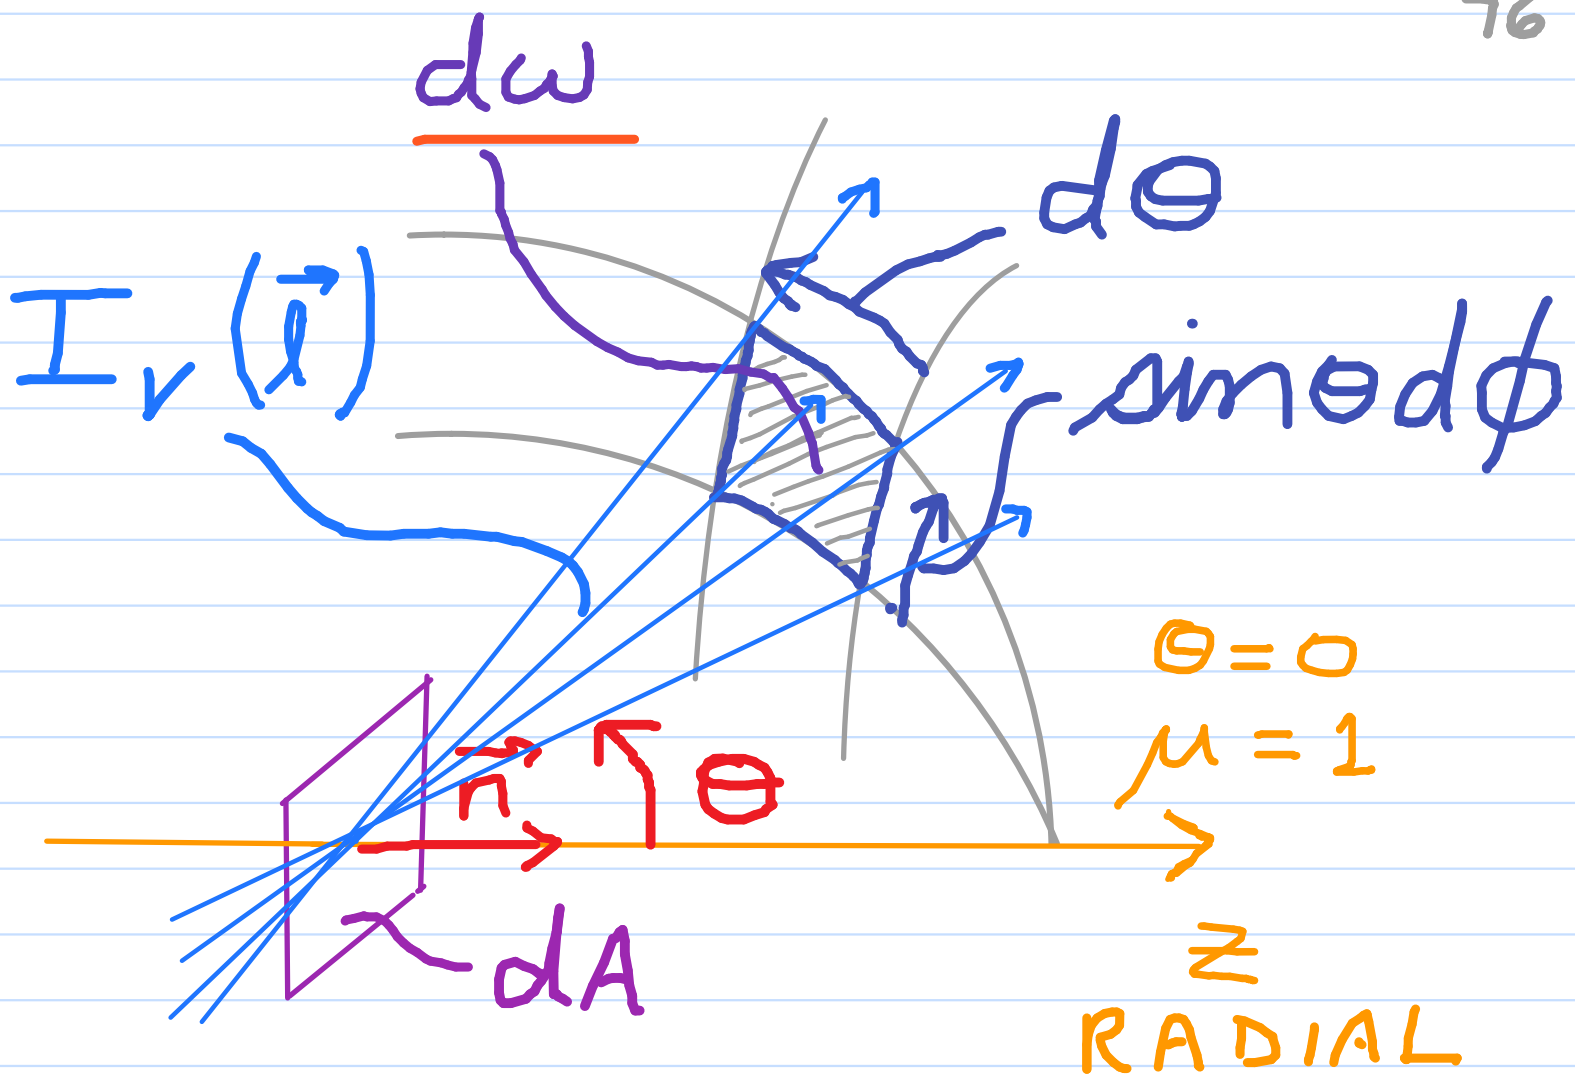 76
dω
dθ
I_ν(\vec{l})
sinθdϕ
θ=0
\vec{n}
θ
μ=1
dA
z
RADIAL